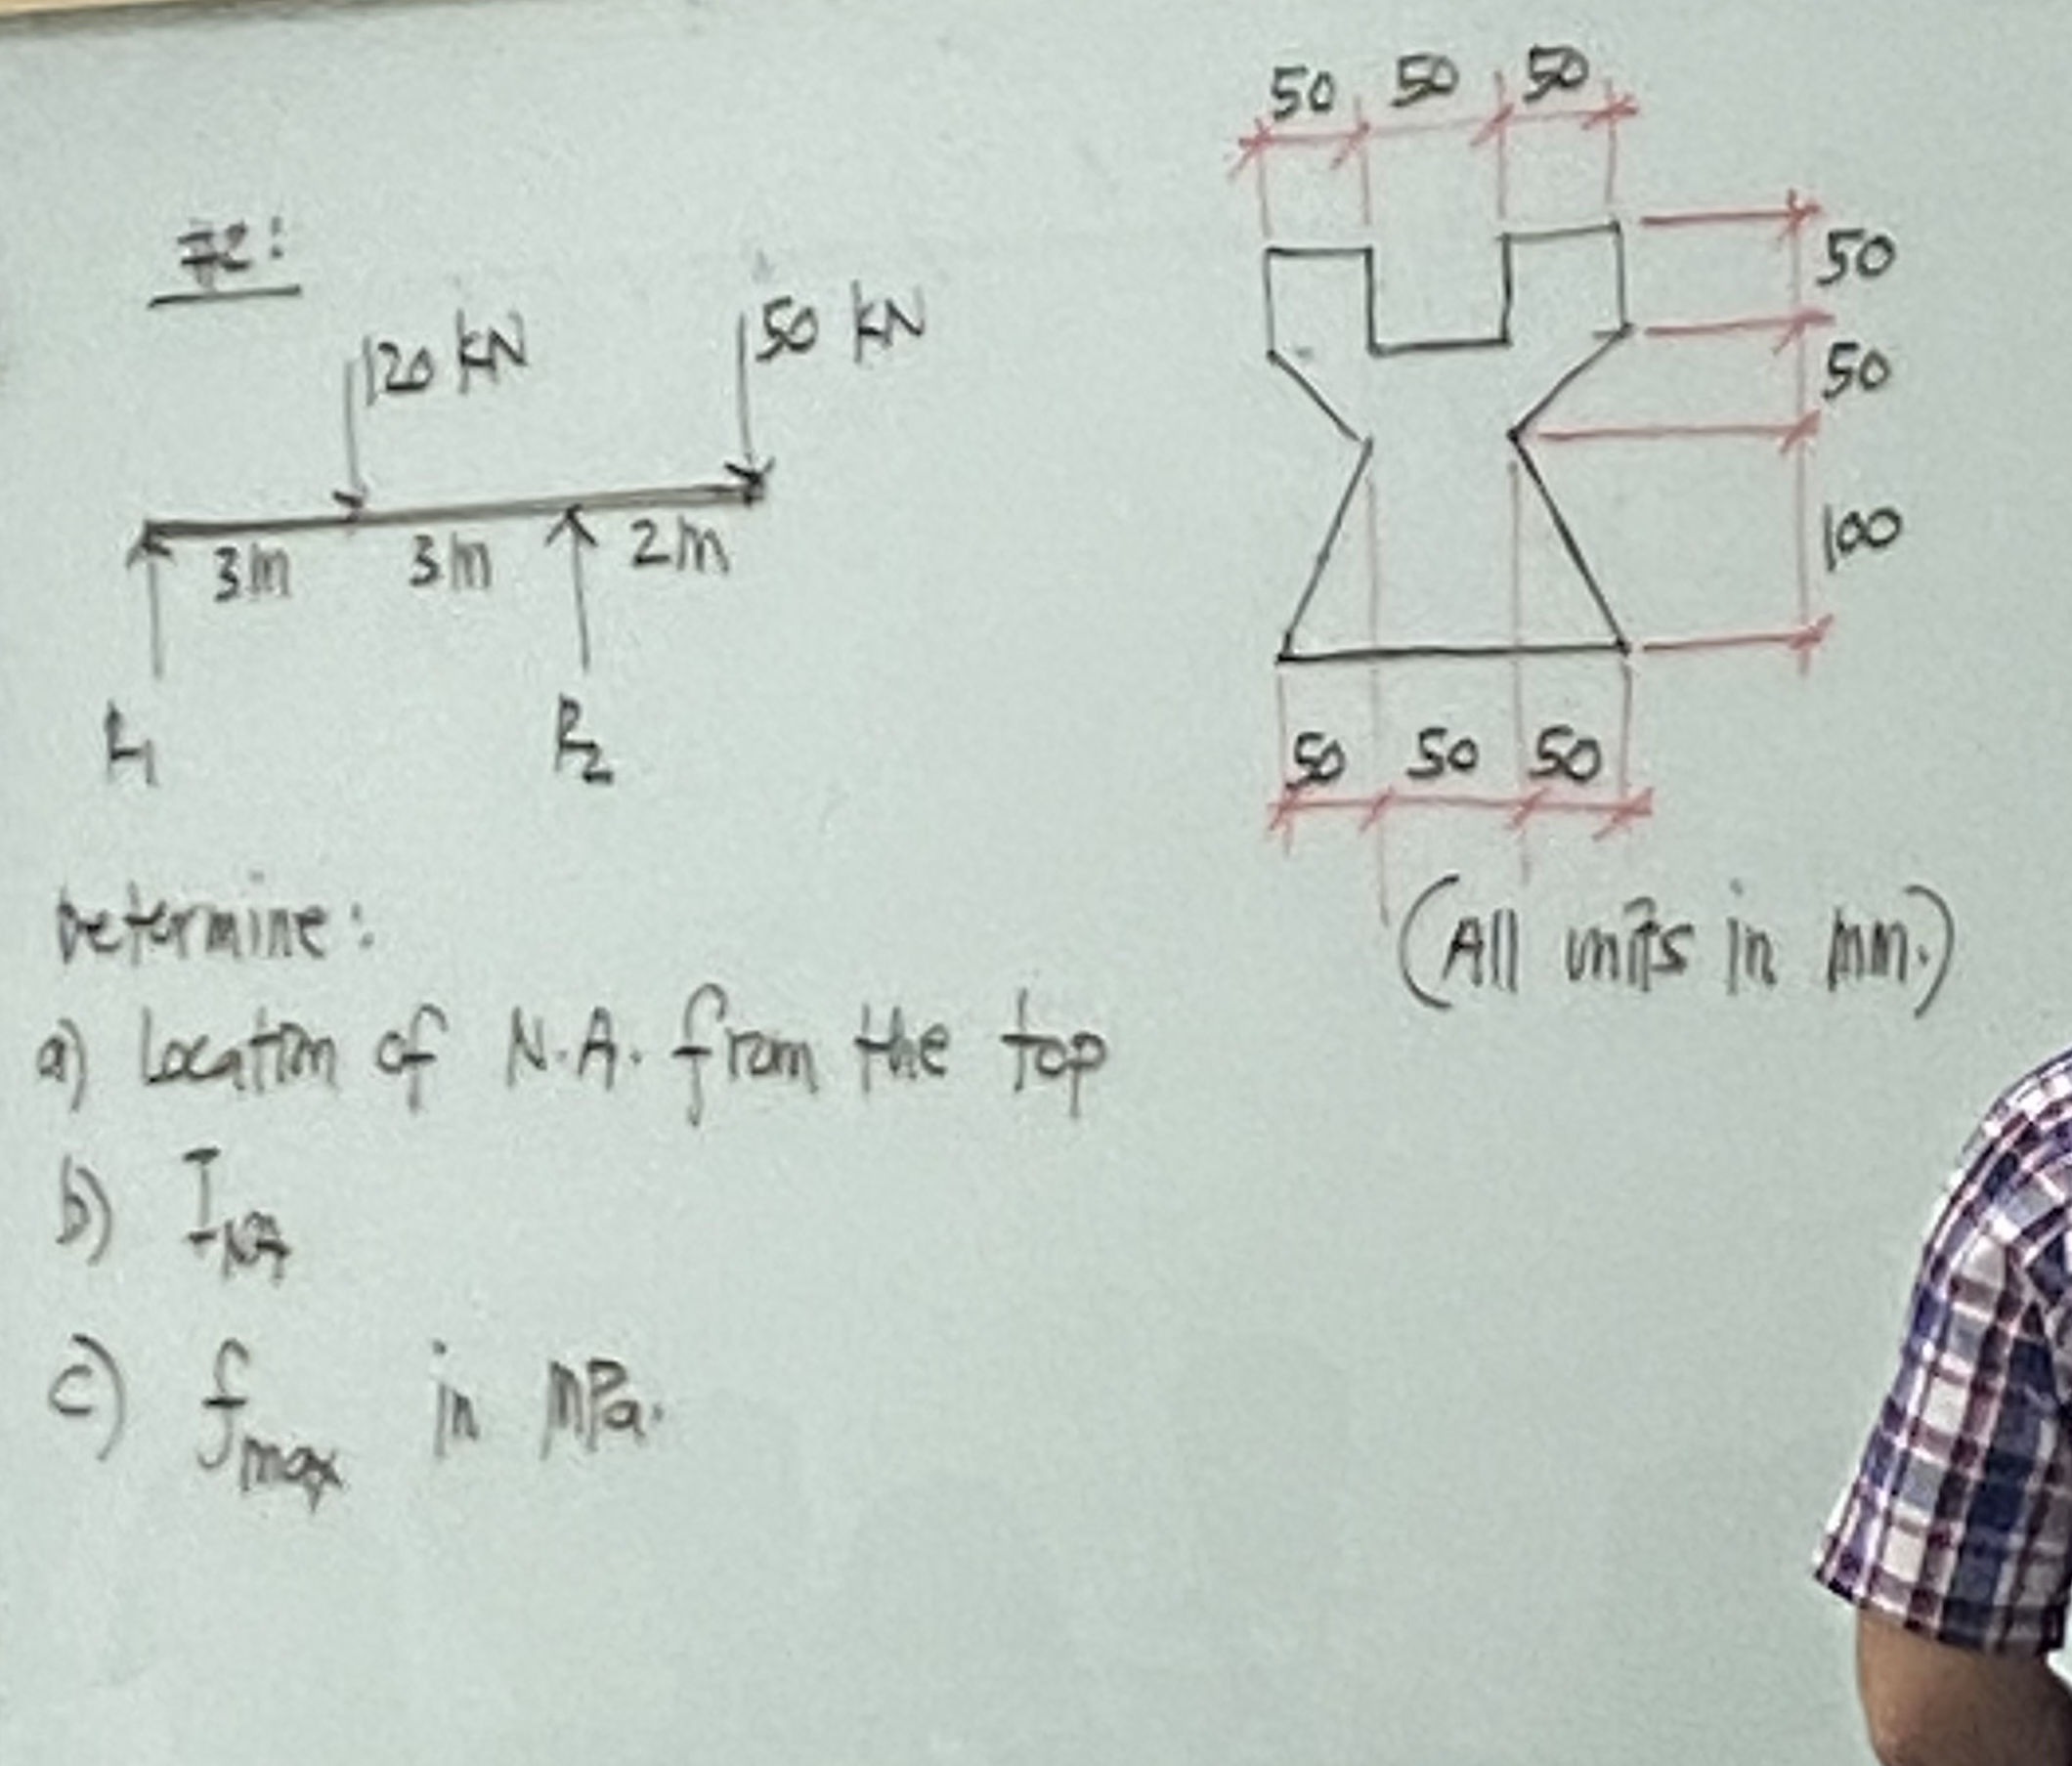 #2:
120 kN
50 kN
3m 3m 2m
R1 R2
50 50 50
50
50
100
50 50 50
(All units in mm.)
Determine:
a) Location of N.A. from the top
b) INA
c) fmax in MPa.